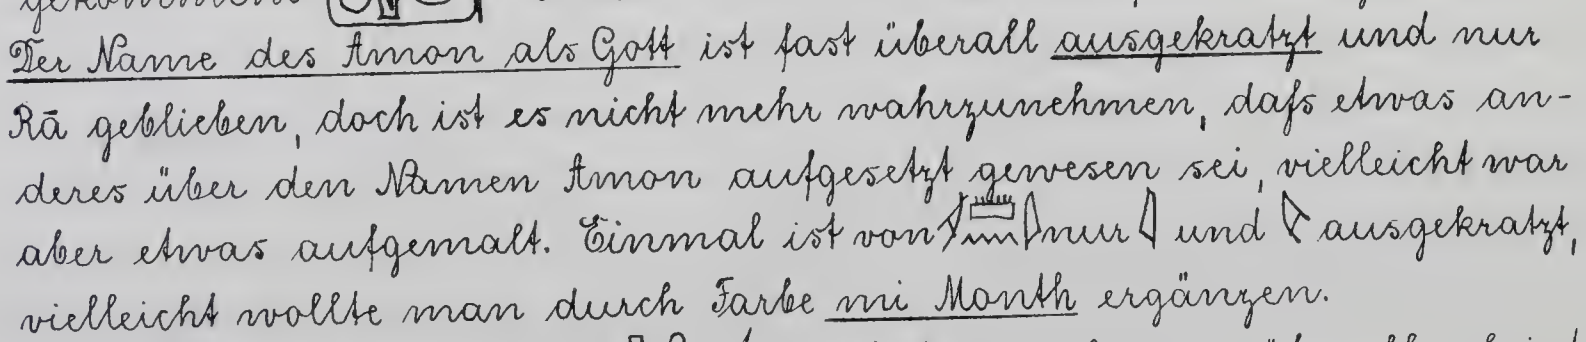 gekommenen
Der Name des Amon als Gott ist fast überall ausgekratzt und nur
Rā geblieben, doch ist es nicht mehr wahrzunehmen, daſs etwas an-
deres über den Namen Amon aufgesetzt gewesen sei, vielleicht war
aber etwas aufgemalt. Einmal ist von nur und ausgekratzt,
vielleicht wollte man durch Farbe mi Month ergänzen.